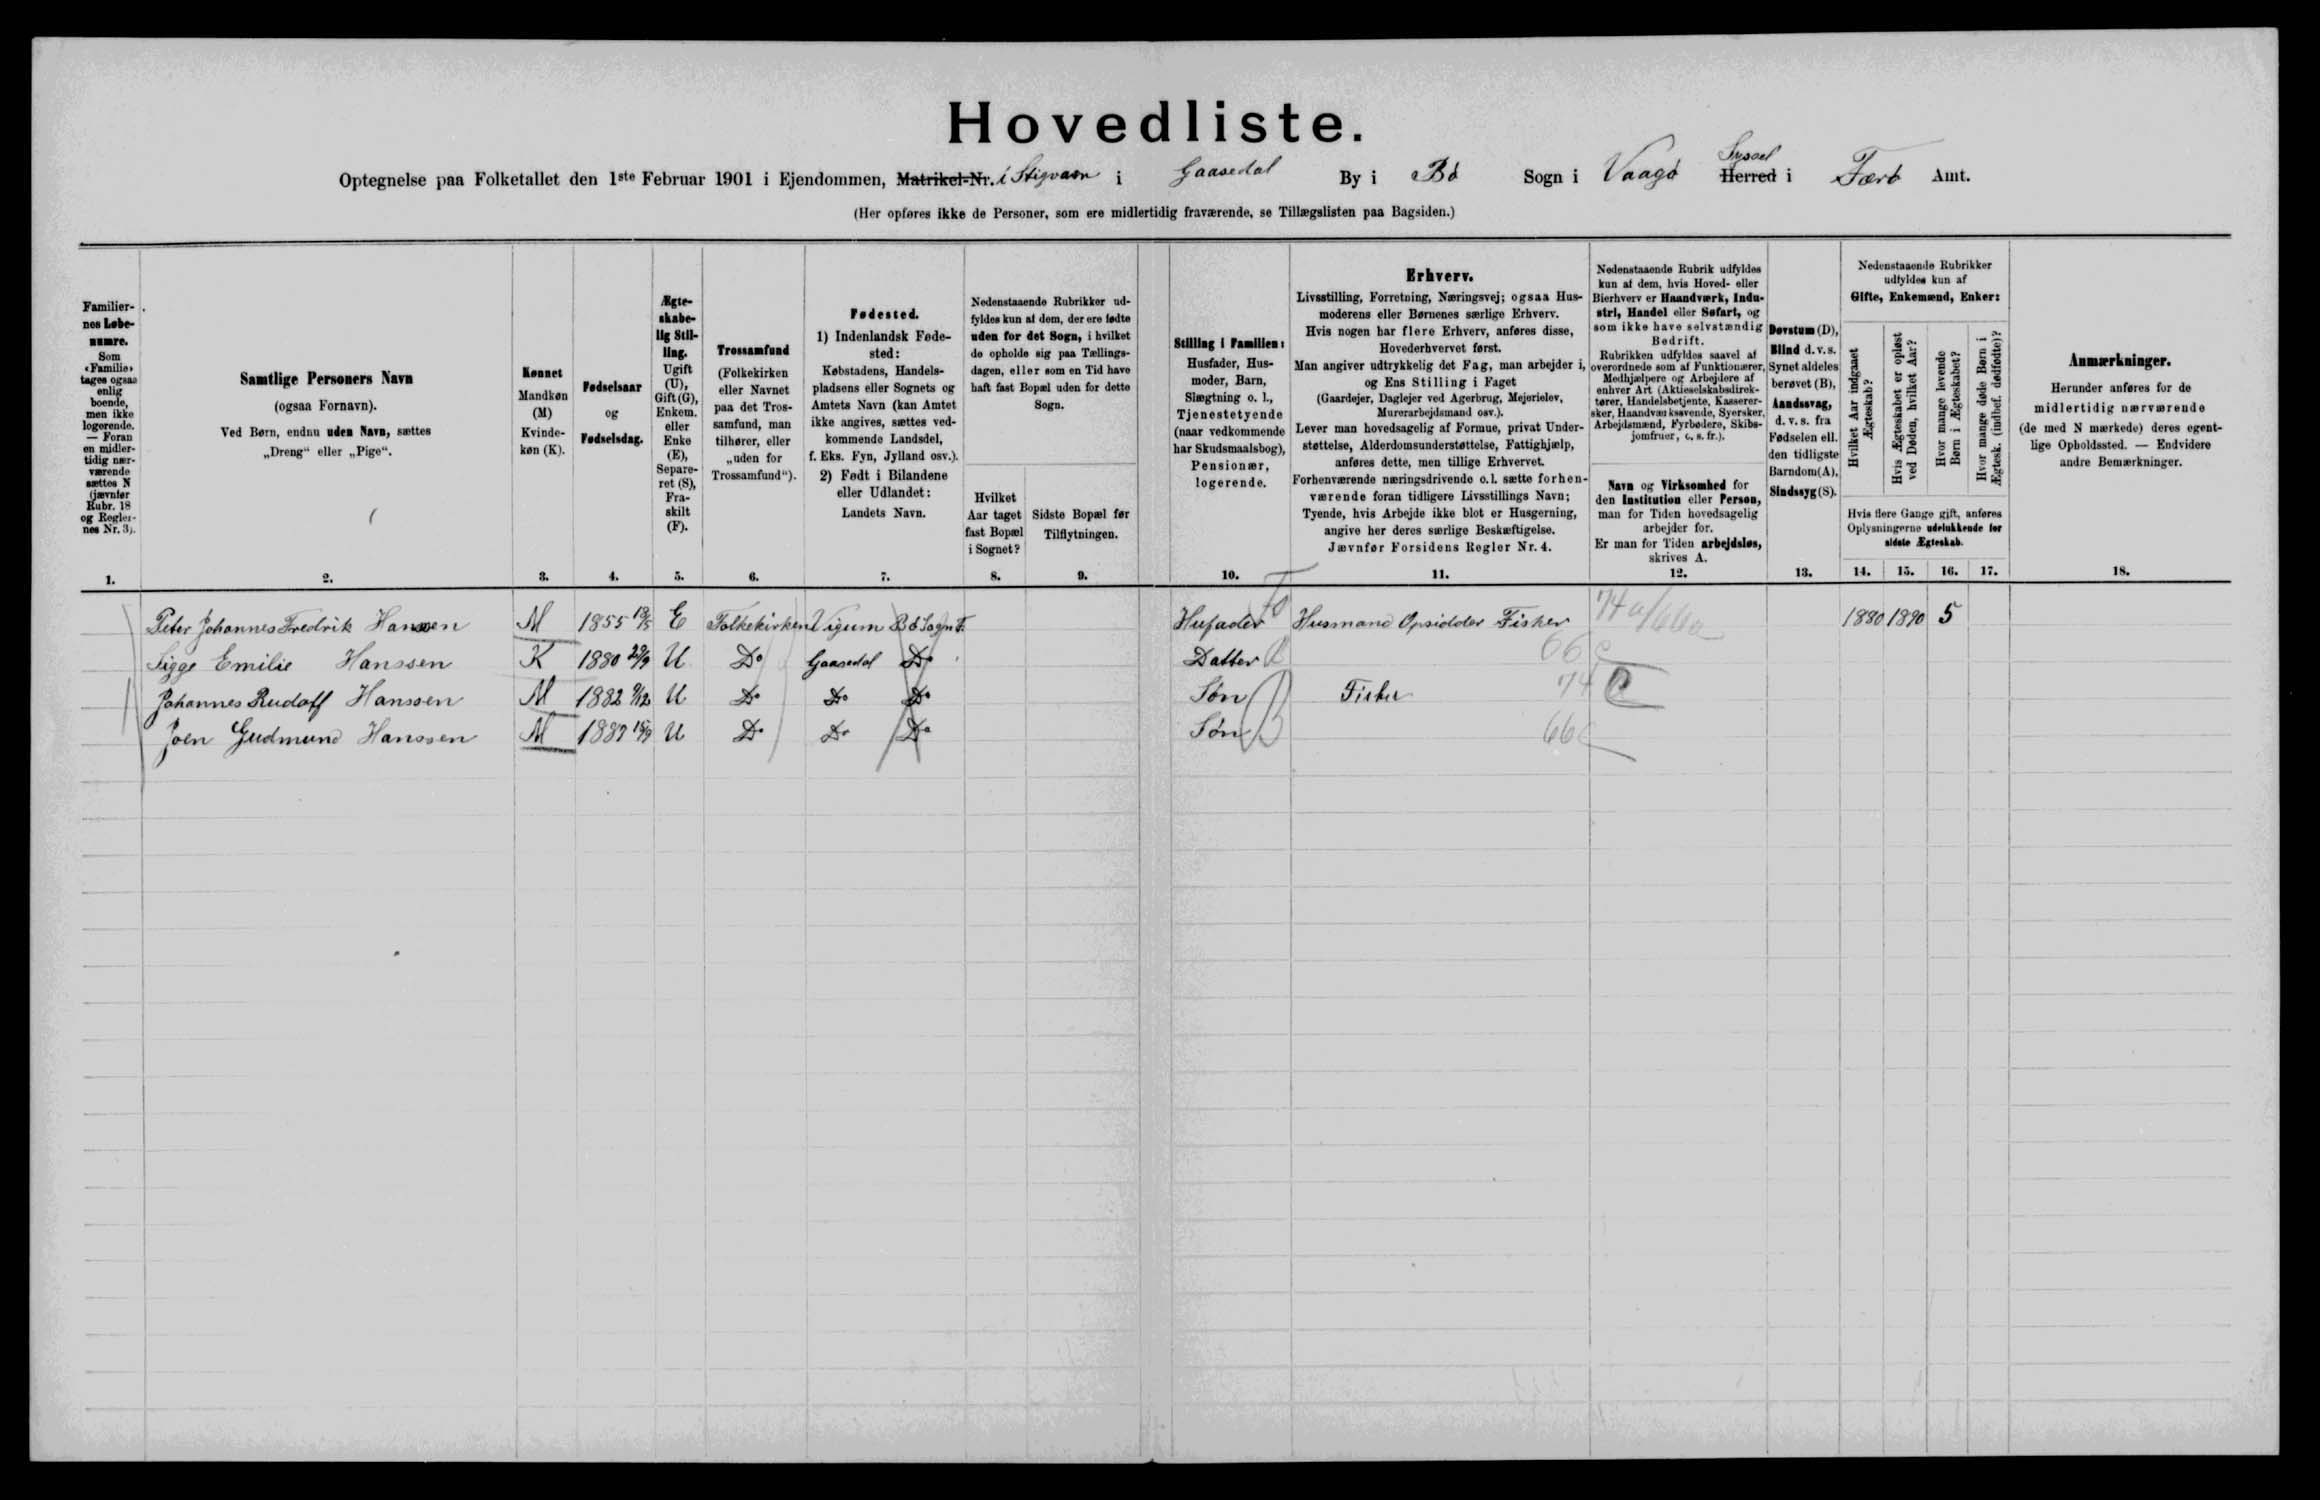 Hovedliste.
Optegnelse paa Folketallet den 1ste Februar 1901 i Ejendommen, Matrikel-Nr. i Stigvaen i Gaasedal By i Bø Sogn i Vaagø Herred Syssel i Færø Amt.
(Her opføres ikke de Personer, som ere midlertidig fraværende, se Tillægslisten paa Bagsiden.)
Familiernes Løbenumre.
Som «Familie» tages ogsaa enlig boende, men ikke logerende. — Foran en midlertidig nærværende sættes N (jævnfør Rubr. 18 og Reglernes Nr. 3).
1.
Samtlige Personers Navn
(ogsaa Fornavn).
Ved Børn, endnu uden Navn, sættes
„Dreng“ eller „Pige“.
2.
Kønnet
Mandkøn (M)
Kvindekøn (K).
3.
Fødselsaar
og
Fødselsdag.
4.
Ægteskabelig Stilling.
Ugift (U), Gift (G), Enkem. eller Enke (E), Separeret (S), Fraskilt (F).
5.
Trossamfund
(Folkekirken eller Navnet paa det Trossamfund, man tilhører, eller „uden for Trossamfund“).
6.
Fødested.
1) Indenlandsk Fødested:
Købstadens, Handelspladsens eller Sognets og Amtets Navn (kan Amtet ikke angives, sættes vedkommende Landsdel, f. Eks. Fyn, Jylland osv.).
2) Født i Bilandene eller Udlandet:
Landets Navn.
7.
Nedenstaaende Rubrikker udfyldes kun af dem, der ere fødte uden for det Sogn, i hvilket de opholde sig paa Tællingsdagen, eller som en Tid have haft fast Bopæl uden for dette Sogn.
Hvilket Aar taget fast Bopæl i Sognet?
8.
Sidste Bopæl før Tilflytningen.
9.
Stilling i Familien:
Husfader, Husmoder, Barn, Slægtning o. l., Tjenestetyende (naar vedkommende har Skudsmaalsbog), Pensionær, logerende.
10.
Erhverv.
Livsstilling, Forretning, Næringsvej; ogsaa Husmoderens eller Børnenes særlige Erhverv.
Hvis nogen har flere Erhverv, anføres disse, Hovederhvervet først.
Man angiver udtrykkelig det Fag, man arbejder i, og Ens Stilling i Faget
(Gaardejer, Daglejer ved Agerbrug, Mejerielev, Murerarbejdsmand osv.).
Lever man hovedsagelig af Formue, privat Understøttelse, Alderdomsunderstøttelse, Fattighjælp, anføres dette, men tillige Erhvervet.
Forhenværende næringsdrivende o. l. sætte forhenværende foran tidligere Livsstillings Navn;
Tyende, hvis Arbejde ikke blot er Husgerning, angive her deres særlige Beskæftigelse.
Jævnfør Forsidens Regler Nr. 4.
11.
Nedenstaaende Rubrik udfyldes kun af dem, hvis Hoved- eller Bierhverv er Haandværk, Industri, Handel eller Søfart, og som ikke have selvstændig Bedrift.
Rubrikken udfyldes saavel af overordnede som af Funktionærer, Medhjælpere og Arbejdere af enhver Art (Aktieselskabsdirektører, Handelsbetjente, Kasserersker, Haandværkssvende, Syersker, Arbejdsmænd, Fyrbødere, Skibsjomfruer, o. s. fr.).
Navn og Virksomhed for den Institution eller Person, man for Tiden hovedsagelig arbejder for.
Er man for Tiden arbejdsløs, skrives A.
12.
Døvstum (D), Blind d. v. s. Synet aldeles berøvet (B), Aandssvag, d. v. s. fra Fødselen ell. den tidligste Barndom (A), Sindssyg (S).
13.
Nedenstaaende Rubrikker udfyldes kun af
Gifte, Enkemænd, Enker:
Hvilket Aar indgaaet Ægteskab?
Hvis Ægteskabet er opløst ved Døden, hvilket Aar?
Hvor mange levende Børn i Ægteskabet?
Hvor mange døde Børn i Ægtesk. (indbef. dødfødte)?
Hvis flere Gange gift, anføres Oplysningerne udelukkende for sidste Ægteskab.
14. 15. 16. 17.
Anmærkninger.
Herunder anføres for de midlertidig nærværende (de med N mærkede) deres egentlige Opholdssted. — Endvidere andre Bemærkninger.
18.
Peter Johannes Fredrik Hanssen M 1855 E Folkekirken Vigum Bø Sogn F. Hufader Husmand Opsidder Fisker 74a/66a 1880 1890 5
Sigge Emilie Hanssen K 1880 U Do Gaasedal Do Datter 66c
Johannes Rudolf Hanssen M 1882 U Do Do Do Søn Fisker 74
Joen Gudmund Hanssen M 1887 U Do Do Do Søn 66c